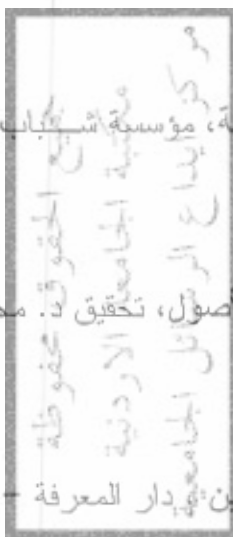 ة، مؤسسة شباب
أصول، تحقيق د. مح
ين، دار المعرفة -
جميع الحقوق محفوظة
مكتبة الجامعة الاردنية
مركز ايداع الرسائل الجامعية